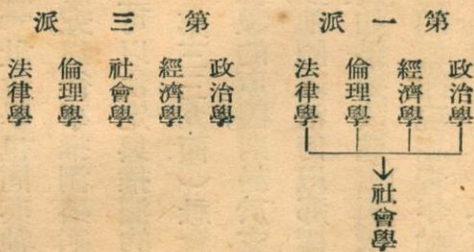 第一派
政治學
經濟學
倫理學
法律學
社會學
第三派
政治學
經濟學
社會學
倫理學
法律學